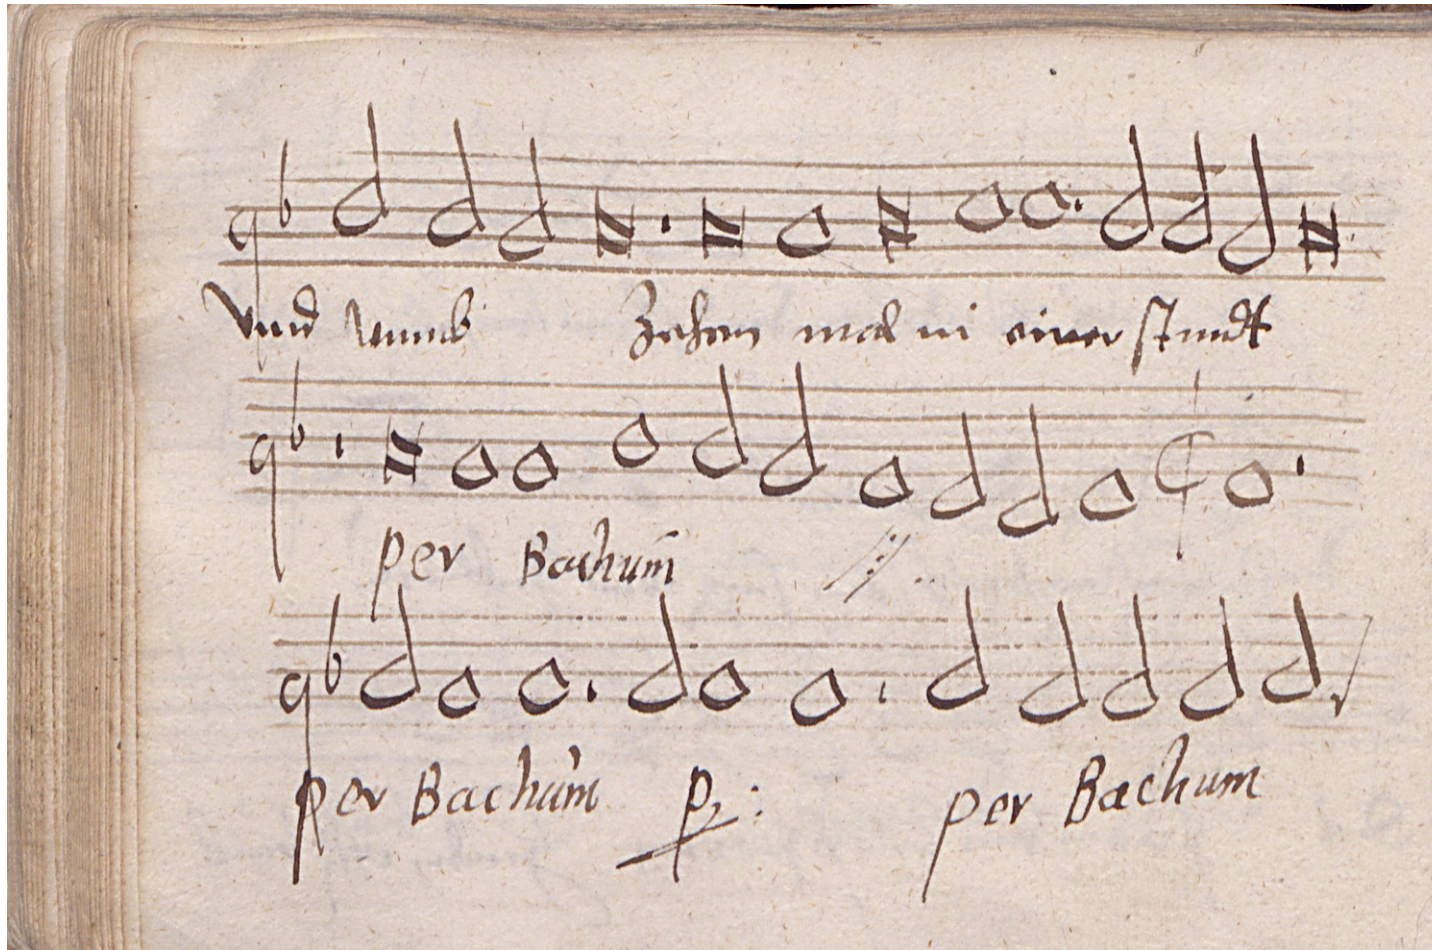 Vnnd vmmb Zehen mal in einer stundt
per Bachum̃
per Bachum̃ p: per Bachum